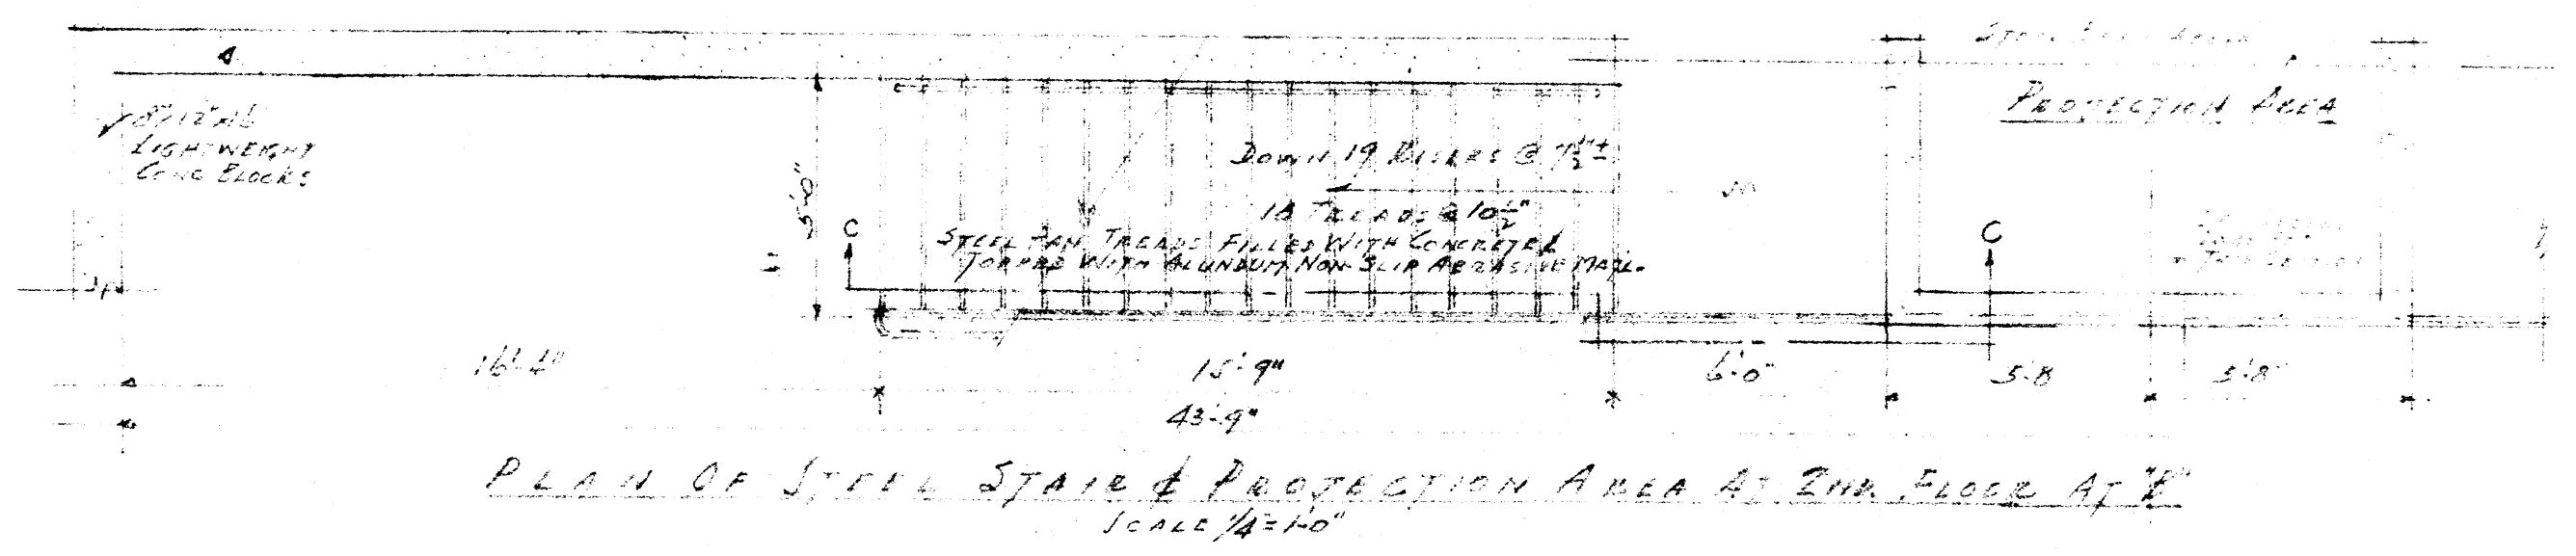 PROJECTION AREA
8"x12"
LIGHTWEIGHT
CONC BLOCKS
DOWN 19 RISERS @ 7½"±
18 TREADS @ 10½"
STEEL PAN TREADS FILLED WITH CONCRETE &
TOPPED WITH ALUNDUM NON-SLIP ABRASIVE MATL.
C
C
UP
16'-4"
15'-9"
6'-0"
5'-8
5'-8"
43'-9"
PLAN OF STEEL STAIR & PROJECTION AREA AT 2ND. FLOOR AT
SCALE ¼"=1'-0"